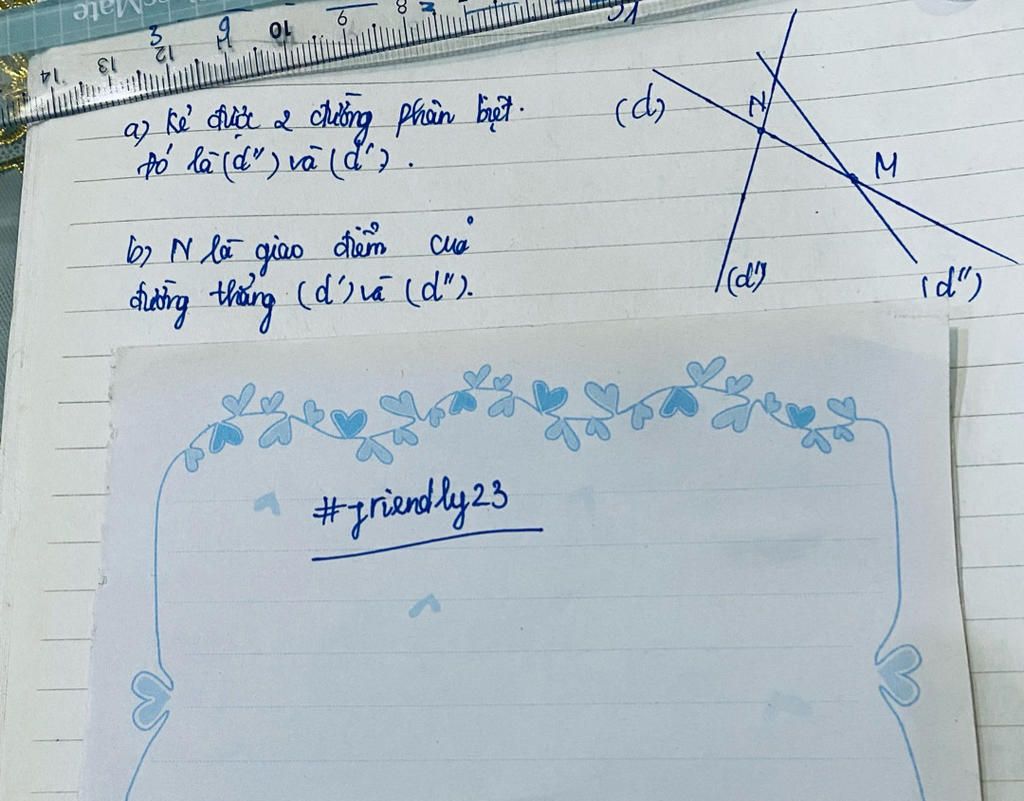 14 13 12 11 10 9 8
3 6
a) Kẻ được 2 đường phân biệt.
Đó là (d'') và (d').
(d)
N
M
(d')
(d'')
b) N là giao điểm của
đường thẳng (d') và (d'').
#friendly23